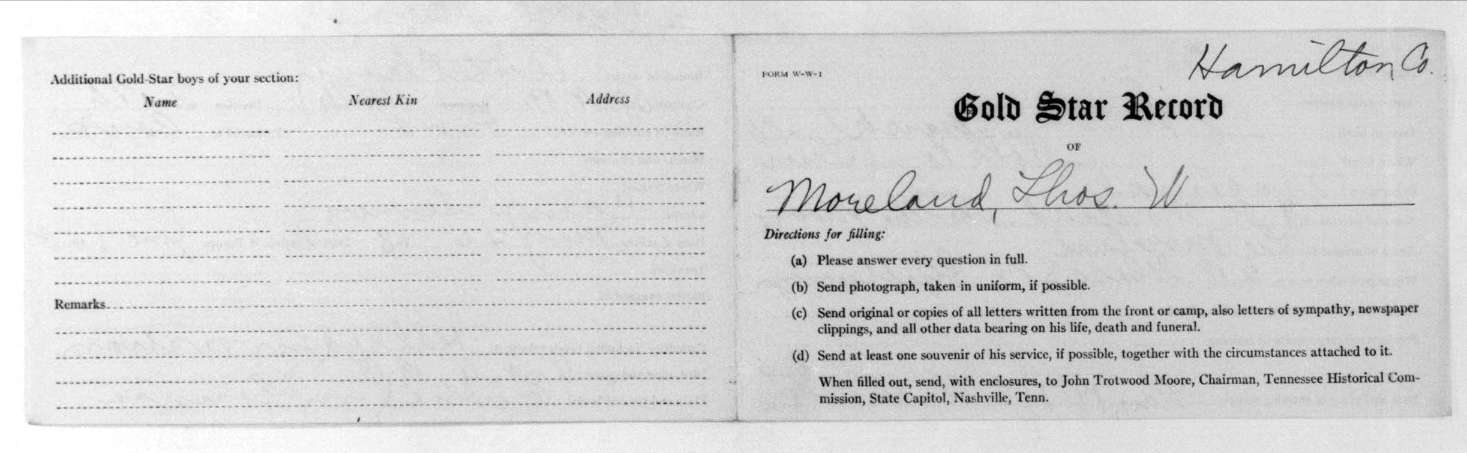 Additional Gold-Star boys of your section:
Name Nearest Kin Address
Remarks
Hamilton Co.
FORM W-W-1
Gold Star Record
OF
Moreland, Thos. W
Directions for filling:
(a) Please answer every question in full.
(b) Send photograph, taken in uniform, if possible.
(c) Send original or copies of all letters written from the front or camp, also letters of sympathy, newspaper
clippings, and all other data bearing on his life, death and funeral.
(d) Send at least one souvenir of his service, if possible, together with the circumstances attached to it.
When filled out, send, with enclosures, to John Trotwood Moore, Chairman, Tennessee Historical Com-
mission, State Capitol, Nashville, Tenn.